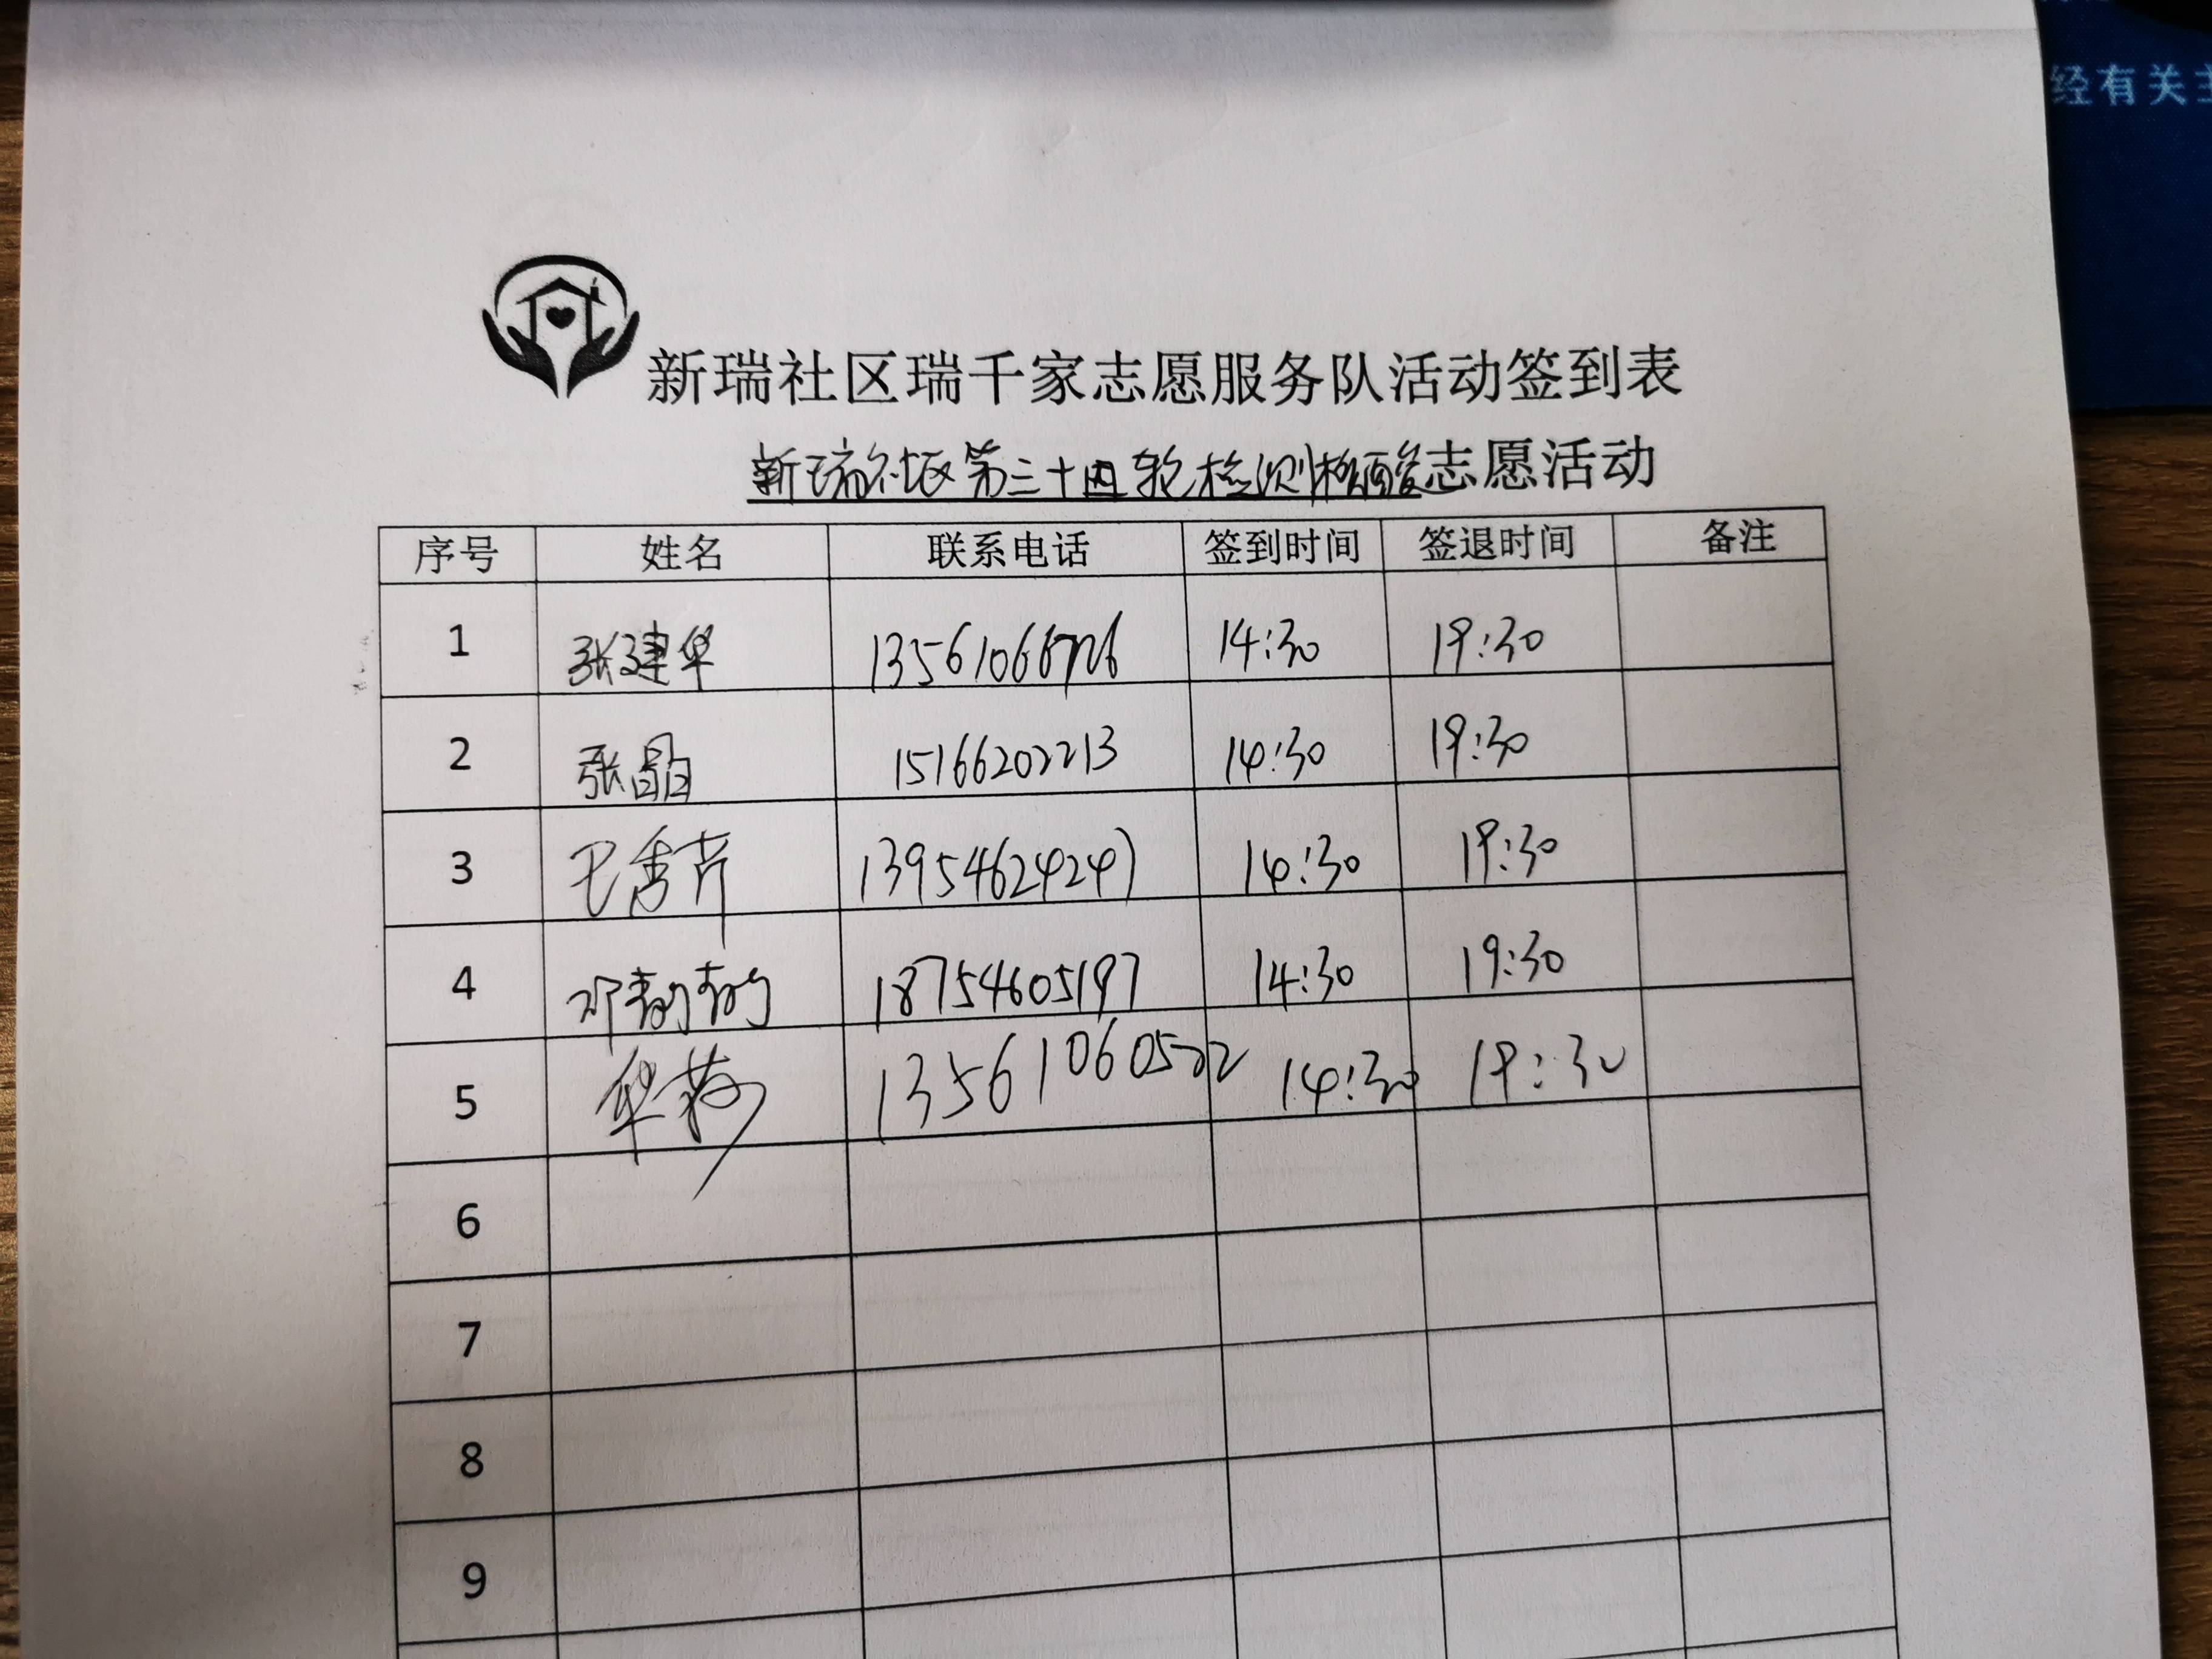 经有关主
新瑞社区瑞千家志愿服务队活动签到表
新瑞社区第三十四轮检测核酸志愿活动
序号 姓名 联系电话 签到时间 签退时间 备注
1 张建华 14:30 19:30
2 张晶 15166202213 14:30 19:30
3 13954624247 14:30 19:30
4 邓青青 18754605197 14:30 19:30
5 13561060522 14:30 19:30
6
7
8
9